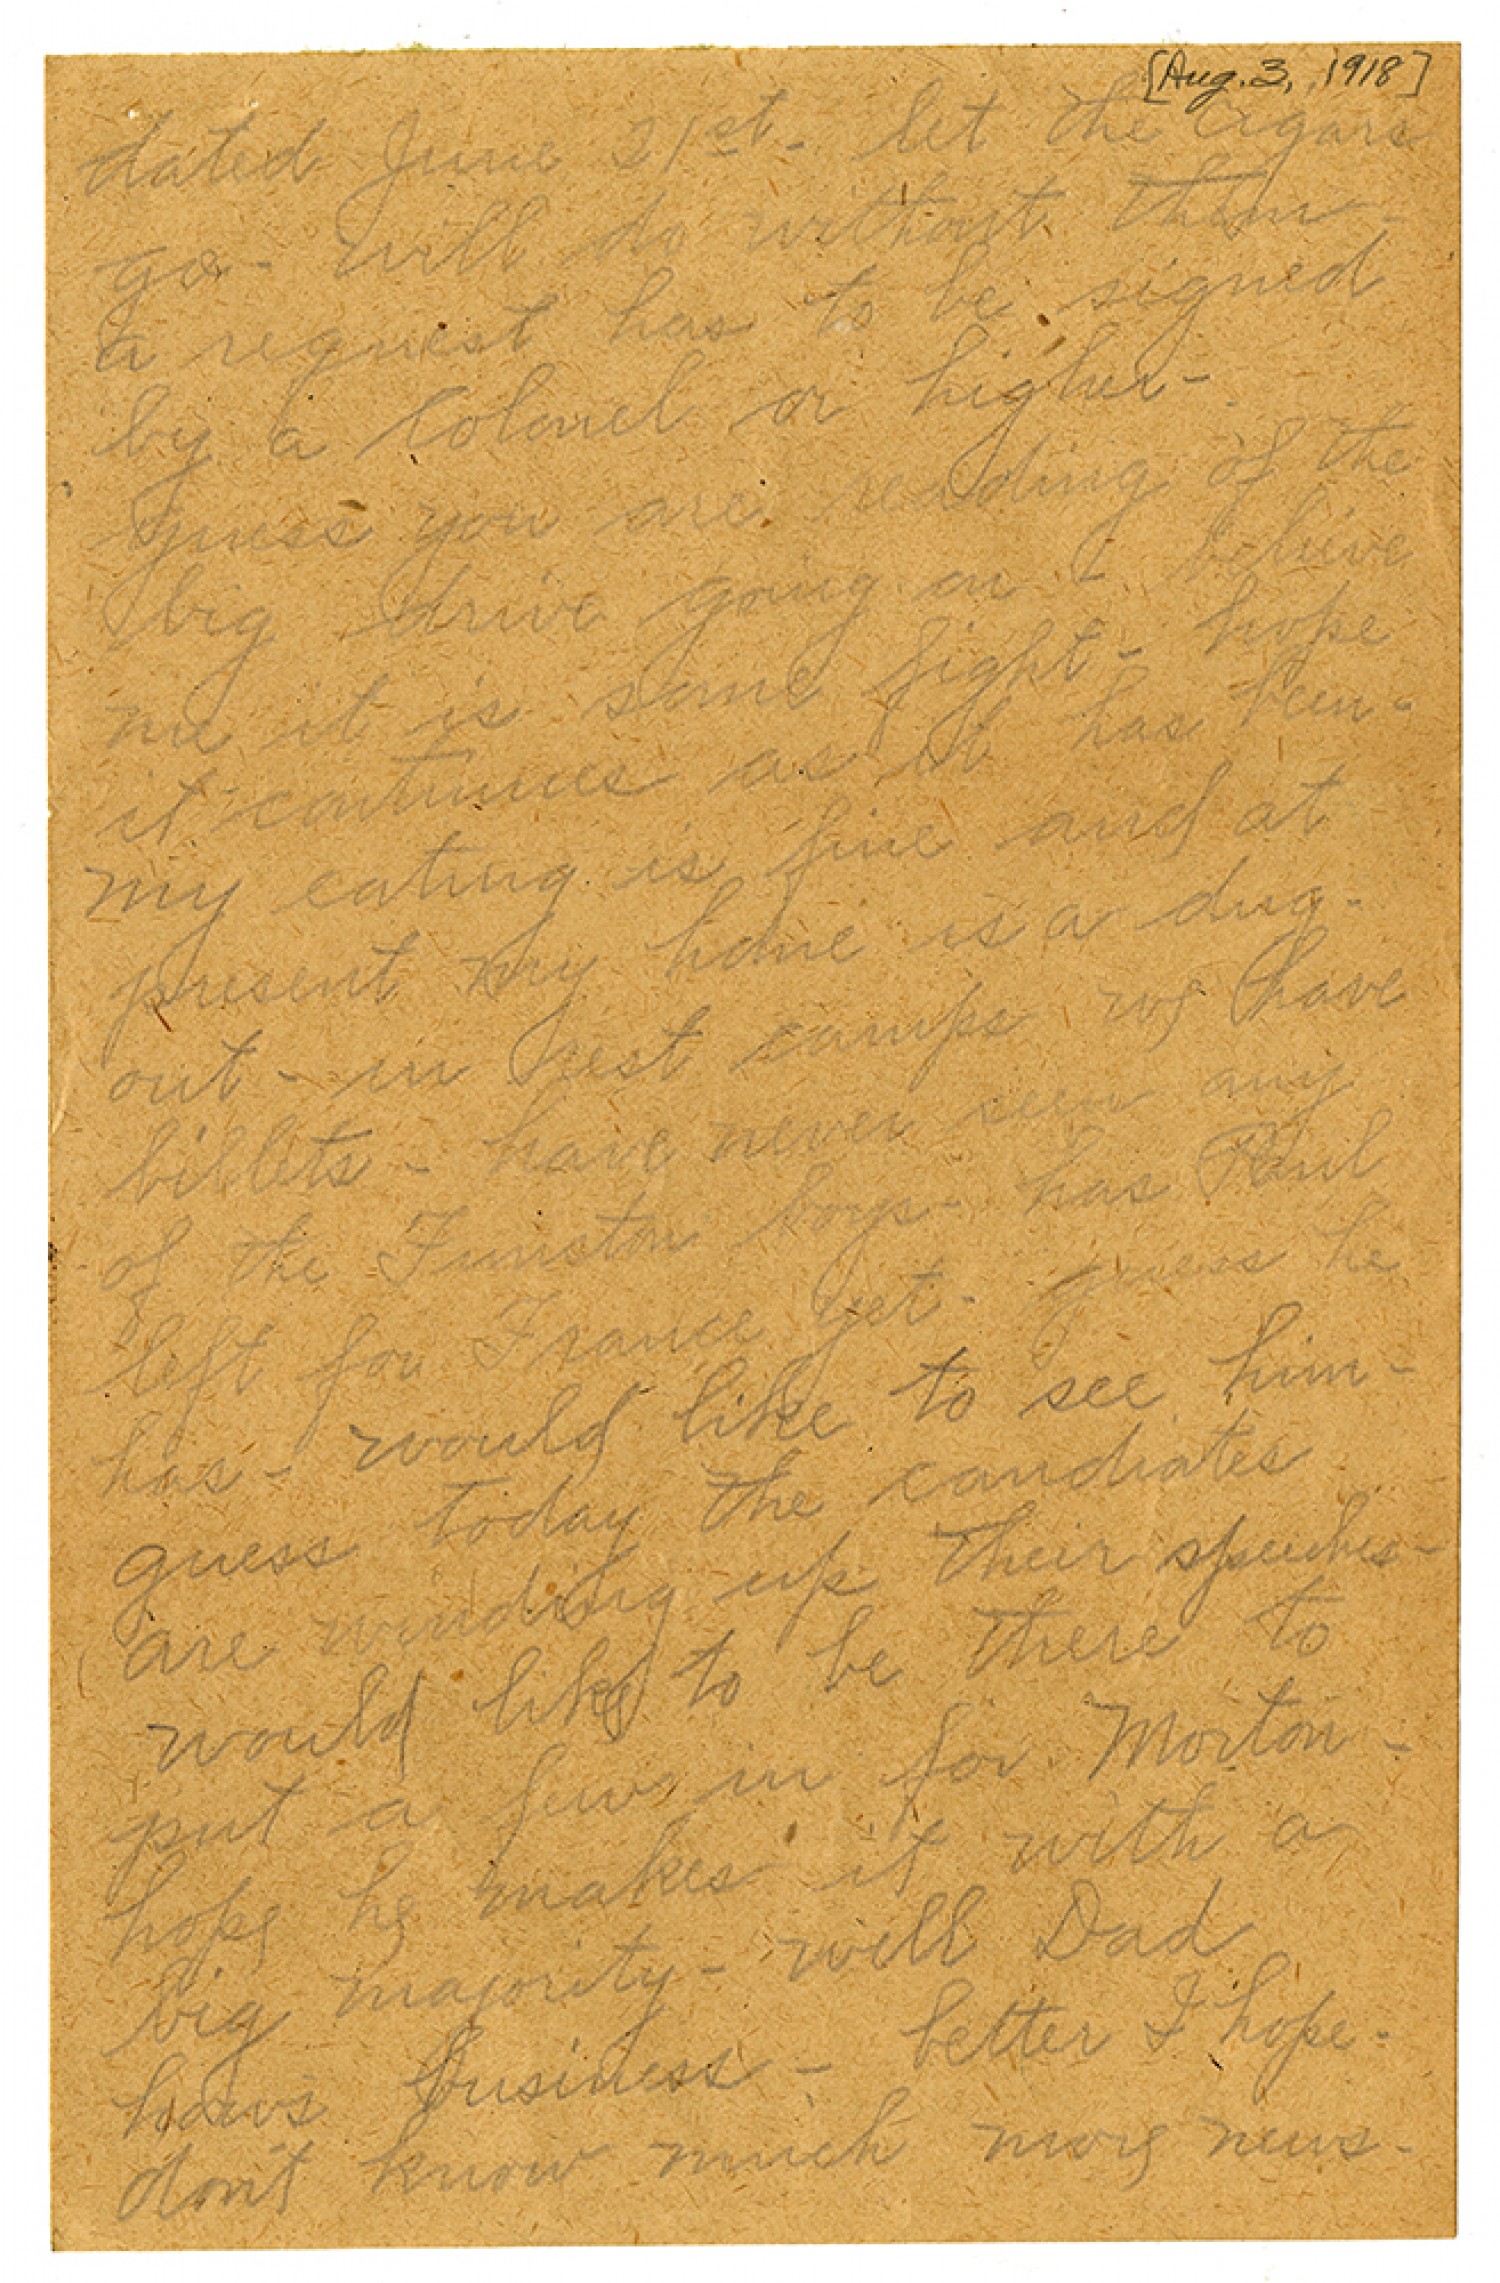 [Aug. 3, 1918]
dated June 21st - let the cigars
go - will do without them -
a request has to be signed
by a Colonel or higher -
guess you are reading of the
big drive going on - believe
me it is some fight - hope
it continues as it has been -
my eating is fine and at
present my home is a dug-
out - in rest camps we have
billets - have never seen any
of the Funston boys - has Paul
left for France yet - guess he
has - would like to see him -
guess today the candiates
are winding up their speeches -
would like to be there to
put a few in for Morton -
hope he makes it with a
big majority - well Dad
hows business - better I hope -
don't know much more news -